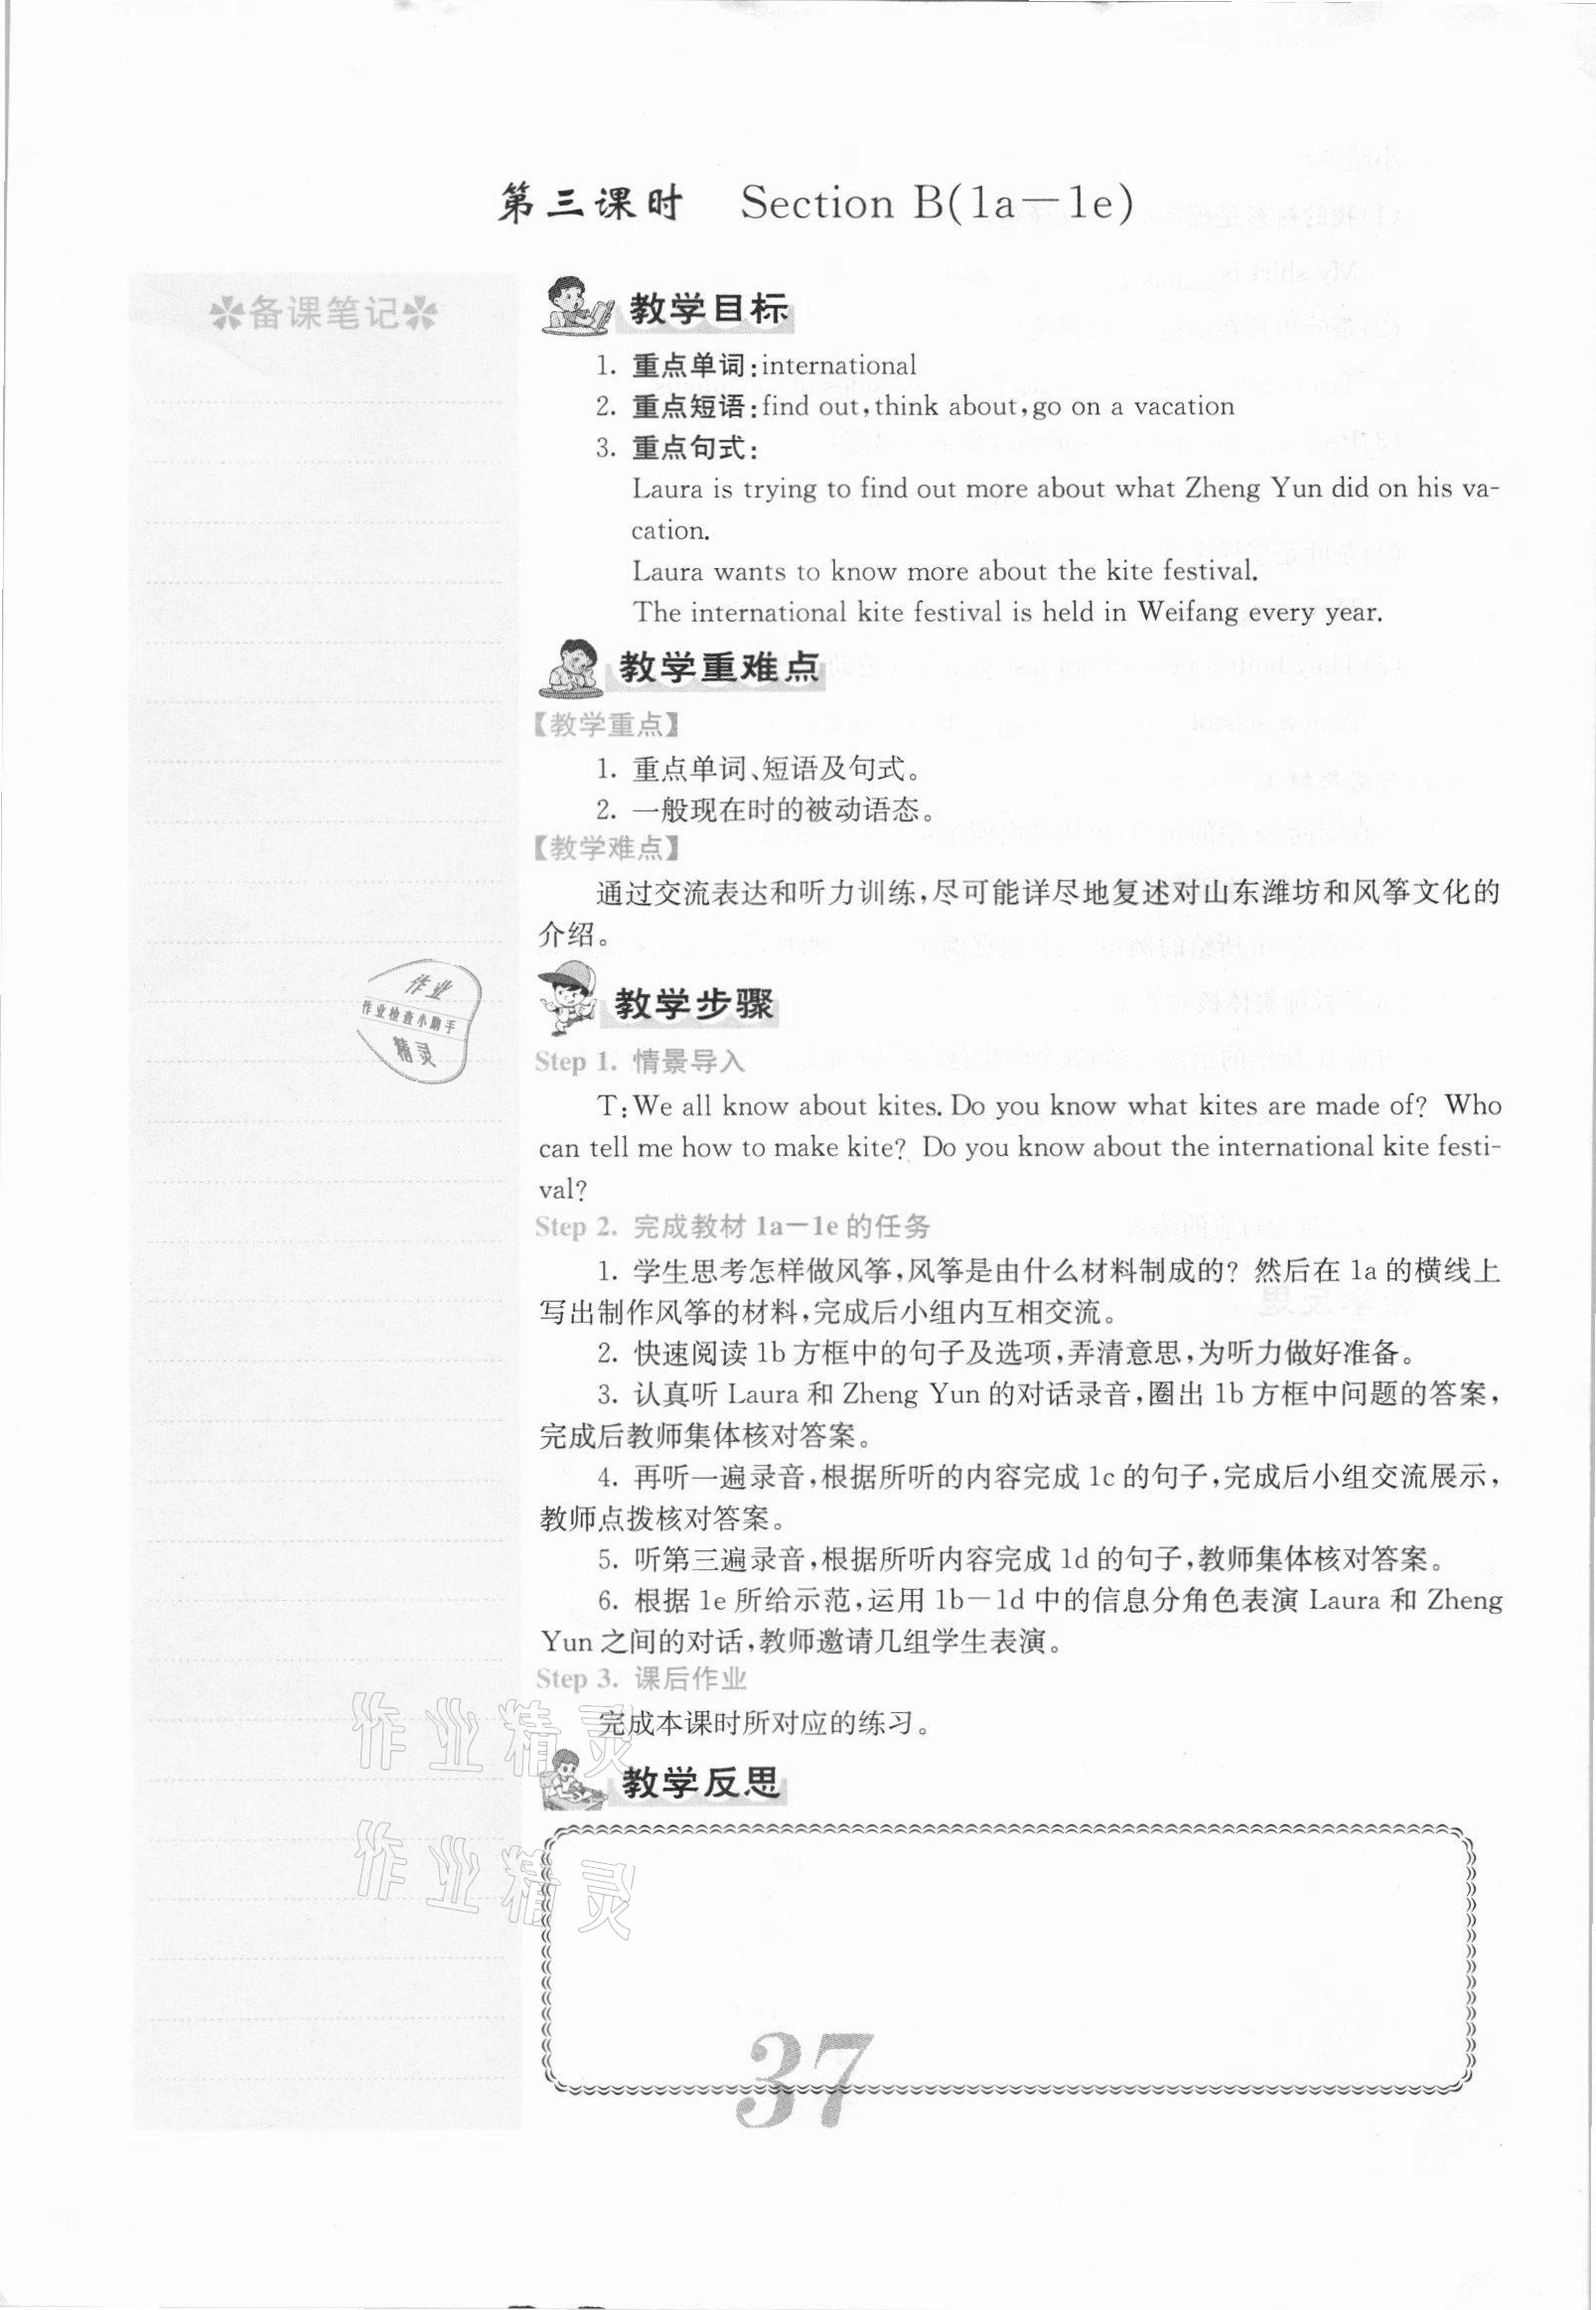 第三课时 Section B(1a—1e)
备课笔记
教学目标
1. 重点单词:international
2. 重点短语:find out,think about,go on a vacation
3. 重点句式:
Laura is trying to find out more about what Zheng Yun did on his va-
cation.
Laura wants to know more about the kite festival.
The international kite festival is held in Weifang every year.
教学重难点
【教学重点】
1. 重点单词、短语及句式。
2. 一般现在时的被动语态。
【教学难点】
通过交流表达和听力训练,尽可能详尽地复述对山东潍坊和风筝文化的
介绍。
作业
作业检查小助手
精灵
教学步骤
Step 1. 情景导入
T:We all know about kites. Do you know what kites are made of? Who
can tell me how to make kite? Do you know about the international kite festi-
val?
Step 2. 完成教材 1a—1e 的任务
1. 学生思考怎样做风筝,风筝是由什么材料制成的? 然后在 1a 的横线上
写出制作风筝的材料,完成后小组内互相交流。
2. 快速阅读 1b 方框中的句子及选项,弄清意思,为听力做好准备。
3. 认真听 Laura 和 Zheng Yun 的对话录音,圈出 1b 方框中问题的答案,
完成后教师集体核对答案。
4. 再听一遍录音,根据所听的内容完成 1c 的句子,完成后小组交流展示,
教师点拨核对答案。
5. 听第三遍录音,根据所听内容完成 1d 的句子,教师集体核对答案。
6. 根据 1e 所给示范,运用 1b—1d 中的信息分角色表演 Laura 和 Zheng
Yun 之间的对话,教师邀请几组学生表演。
Step 3. 课后作业
完成本课时所对应的练习。
作业精灵
教学反思
作业精灵
37